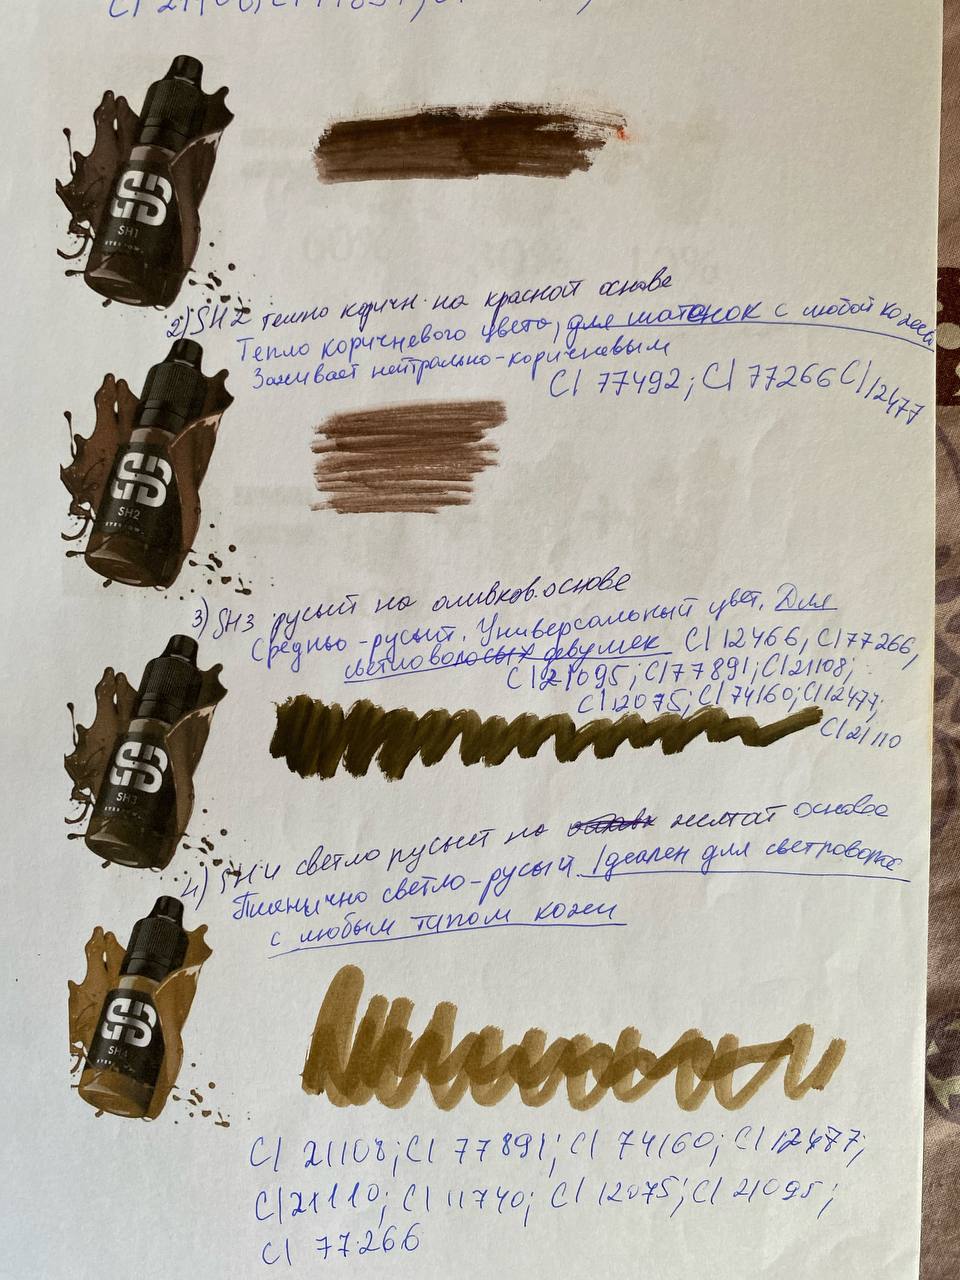 CI 21108; CI 77891; CI
SH1
2) SH2 темно коричн. на красной основе
Тепло коричневого цвета, для шатенок с любой кожей
Заживает нейтрально-коричневым
CI 77492; CI 77266 CI 12477
SH2
3) SH3 русый на оливков. основе
Средне-русый. Универсальный цвет. Для
светловолосых девушек CI 12466, CI 77266,
CI 21095; CI 77891; CI 21108;
CI 12075; CI 74160; CI 12477;
CI 21110
SH3
4) SH4 светло русый на желтой основе
Пшенично светло-русый. Идеален для
с любым типом кожи
SH4
CI 21108; CI 77891; CI 74160; CI 12477;
CI 21110; CI 11740; CI 12075; CI 21095;
CI 77266